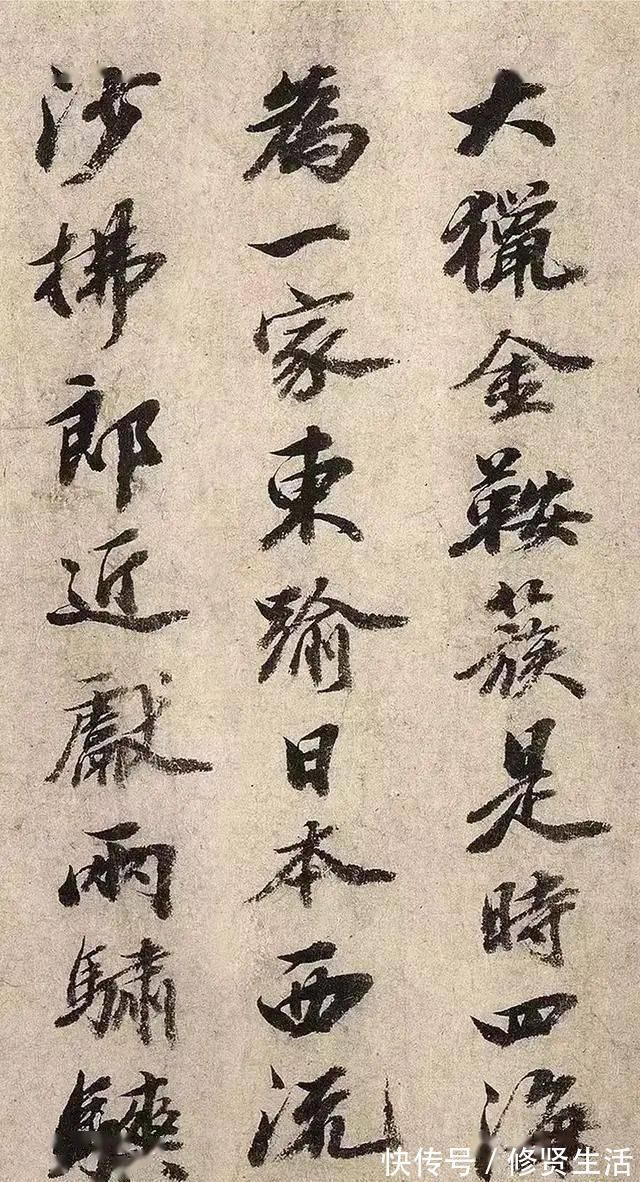 大獵金鞍蔟是時四海
為一家東踰日本西流
沙拂郎近獻兩驌驦
快传号/修贤生活